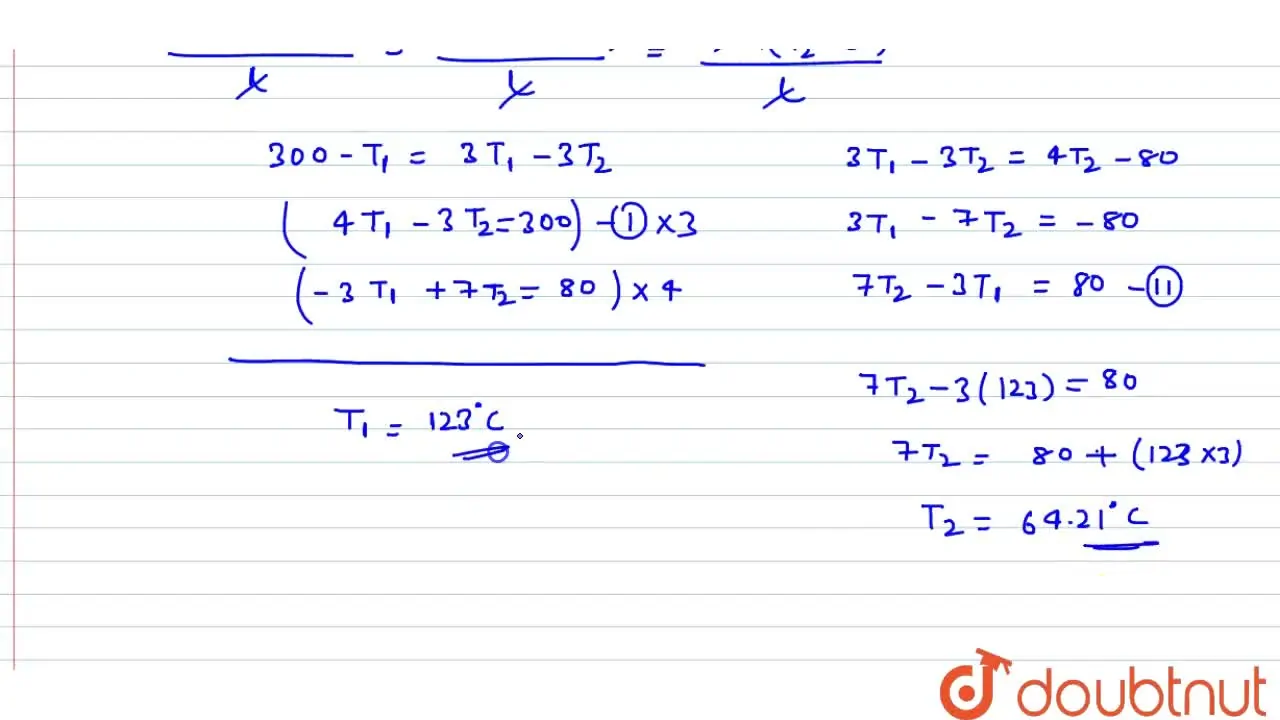 300 - T₁ = 3T₁ - 3T₂
(4T₁ - 3T₂ = 300) - ① × 3
(-3T₁ + 7T₂ = 80) × 4
T₁ = 123°C
3T₁ - 3T₂ = 4T₂ - 80
3T₁ - 7T₂ = -80
7T₂ - 3T₁ = 80 - ⑪
7T₂ - 3(123) = 80
7T₂ = 80 + (123 × 3)
T₂ = 64.21°C
doubtnut